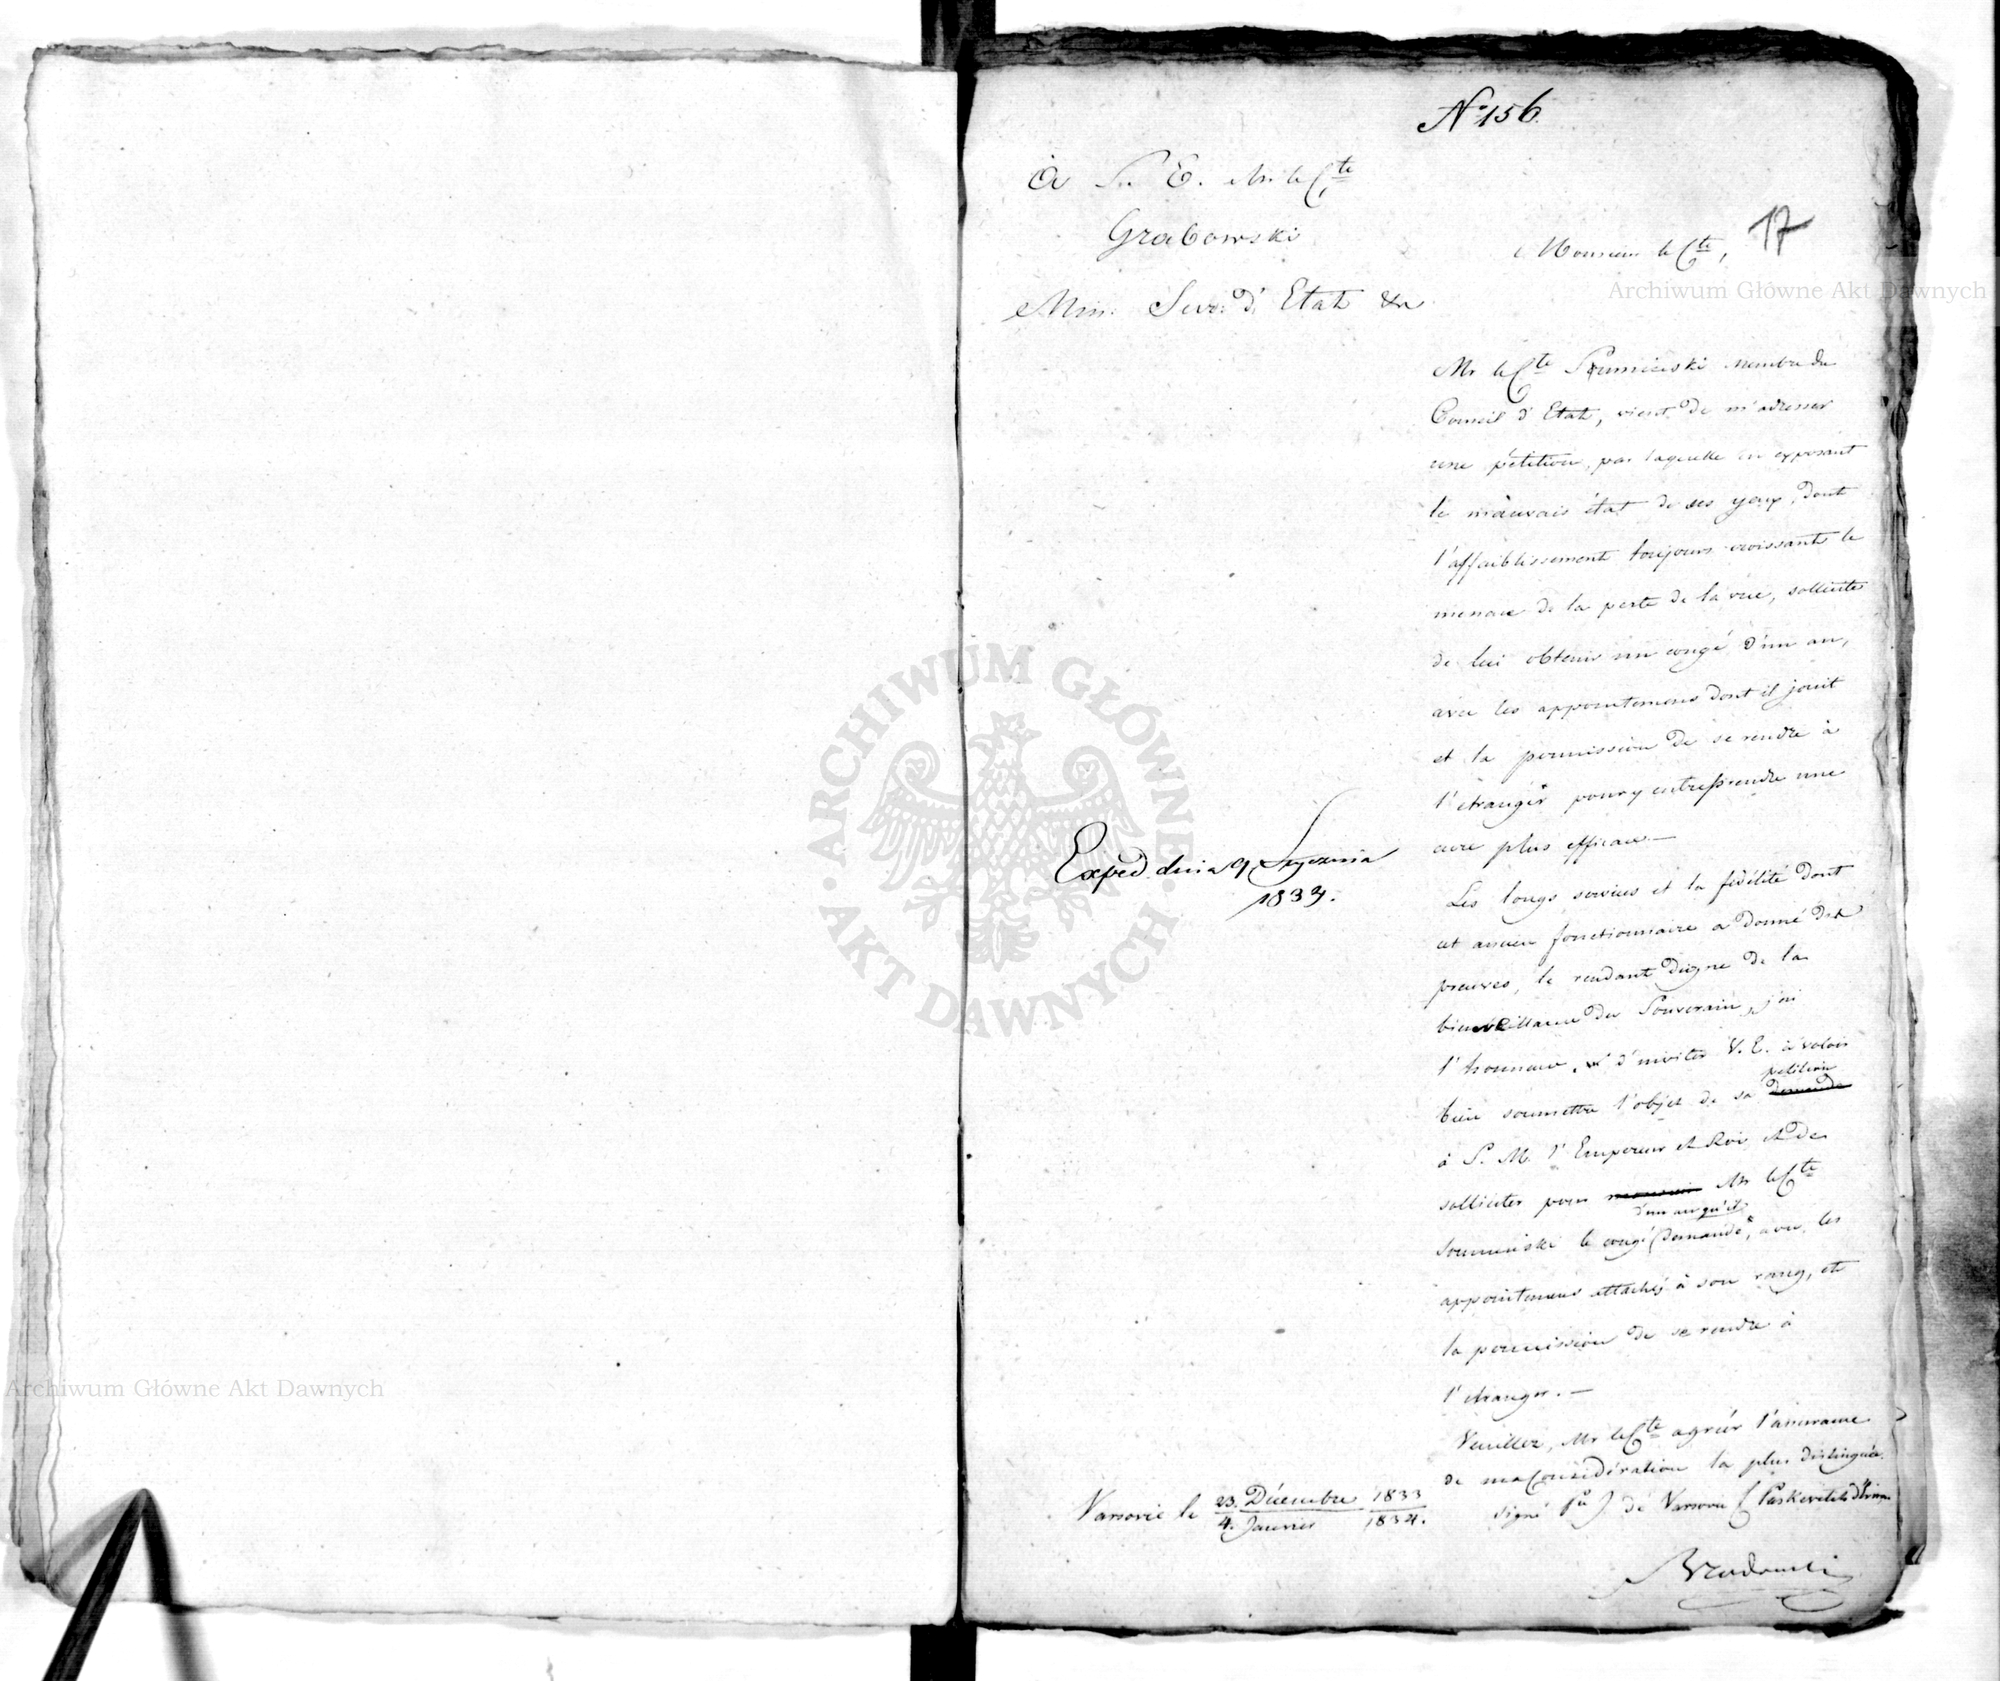 N° 156.
17
A S. E. Mr le Cte
Grabowski
Min. Secr. d'Etat &c
Monsieur le Cte,
Mr le Cte Soumiński membre du
Conseil d'Etat, vient de m'adresser
une pétition, par laquelle en exposant
le mauvais état de ses yeux, dont
l'affaiblissement toujours croissant le
menace de la perte de la vue, sollicite
de lui obtenir un congé d'un an,
avec les appointemens dont il jouit
et la permission de se rendre à
l'étranger pour y entreprendre une
cure plus efficace. —
Les longs services et la fidélité dont
cet ancien fonctionnaire a donné des
preuves, le rendant digne de la
bienveillance du Souverain, j'ai
l'honneur, d'inviter V. E. à voloir
petition
bien soumettre l'objet de sa demande
à S. M. l'Empereur et Roi et de
solliciter pour Mr le Cte
d'un an qu'il
Soumiński le congé demande, avec les
appointemens attachés à son rang, et
la permission de se rendre à
l'étranger. —
Veuillez, Mr le Cte agréer l'assurance
de ma considération la plus distinguée.
signé Pce de Varsovie Cte Paskevitch d'Erivan
Varsovie le 23. Décembre 1833
4. Janvier 1834.
Exped. dnia 9 Stycznia
1834.
Archiwum Główne Akt Dawnych
Archiwum Główne Akt Dawnych
ARCHIWUM GŁÓWNE AKT DAWNYCH